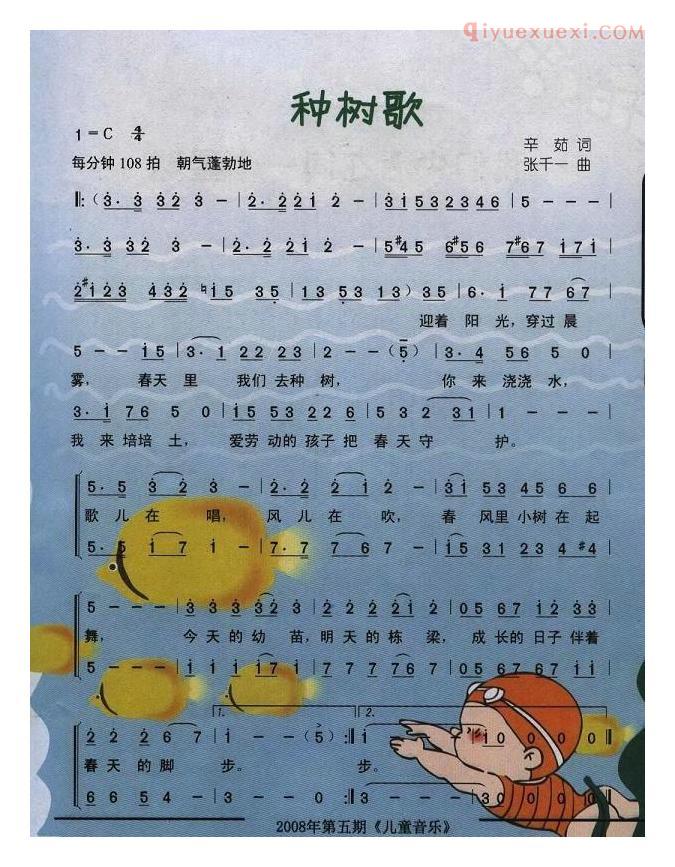 qiyuexuexi.COM
种树歌
1=C 4/4
辛茹 词
每分钟 108 拍 朝气蓬勃地
张千一 曲
‖:(3· 3 32 3 — | 2· 2 21 2 — | 31532346 | 5 — — — |
3· 3 32 3 — | 2· 2 21 2 — | 5#45 6#56 7#67 171 |
2#123 432 ♮15 35 | 13 53 13)35 | 6· 1 77 67 |
迎着 阳 光，穿过 晨
5 — — 15 | 3· 1 22 23 | 2 — —(5) | 3· 4 56 5 0 |
雾， 春天 里 我们 去种 树， 你 来 浇浇 水，
3· 1 76 5 0 | 15 53 22 66 | 5 3 2 31 | 1 — — — |
我 来 培培 土， 爱劳 动的 孩子 把 春 天 守 护。
5· 5 3 2 3 — | 2· 2 2 1 2 — | 15 53 45 6 6 |
歌 儿 在 唱， 风 儿 在 吹， 春 风里 小树 在 起
5· 5 1 7 1 — | 7· 7 7 6 7 — | 15 31 23 4 #4 |
5 — — — | 3 3 3 3 3 2 3 | 2 2 2 2 2 1 2 | 05 67 12 33 |
舞， 今 天 的 幼 苗，明 天 的 栋 梁， 成 长的 日子 伴着
5 — — — | 1 1 1 1 1 7 1 | 7 7 7 7 6 7 | 05 67 67 11 |
1. 2.
2 2 2 67 | 1 — —(5):‖ 1 — — — | 1 0 0 0 0‖
春 天 的 脚 步。 步。
6 6 5 4 | 3 — — 0 :‖ 3 — — — | 3 0 0 0 0‖
2008年第五期《儿童音乐》